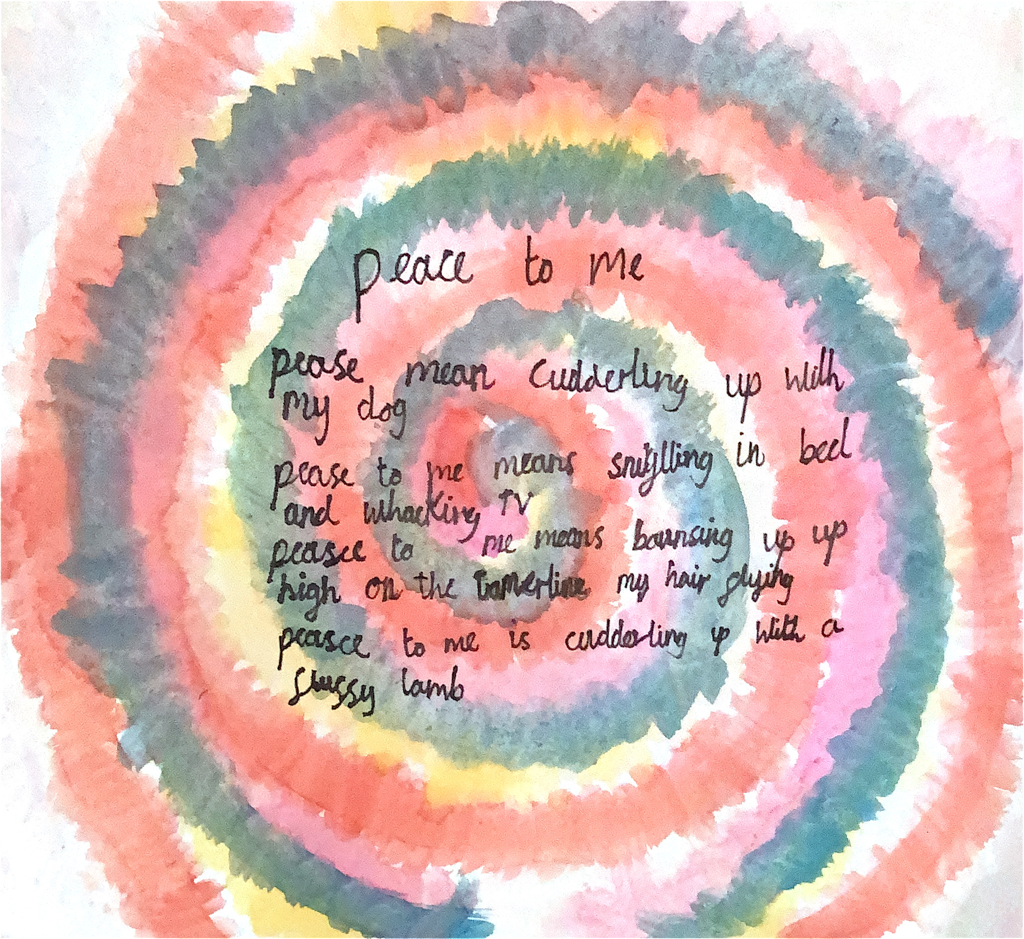 peace to me
pease mean cudderling up with
my dog
pease to me means snujlling in bed
and whacking TV
peasce to me means bounsing up up
high on the tramerline my hair flying
peasce to me is cudderling up with a
flussy lamb